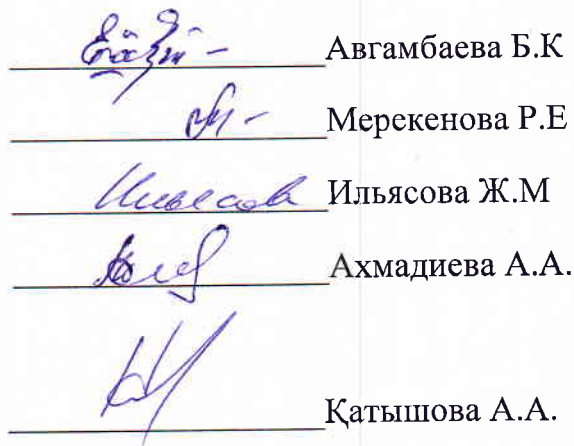 Авгамбаева Б.К
Мерекенова Р.Е
Ильясова Ж.М
Ахмадиева А.А.
Қатышова А.А.